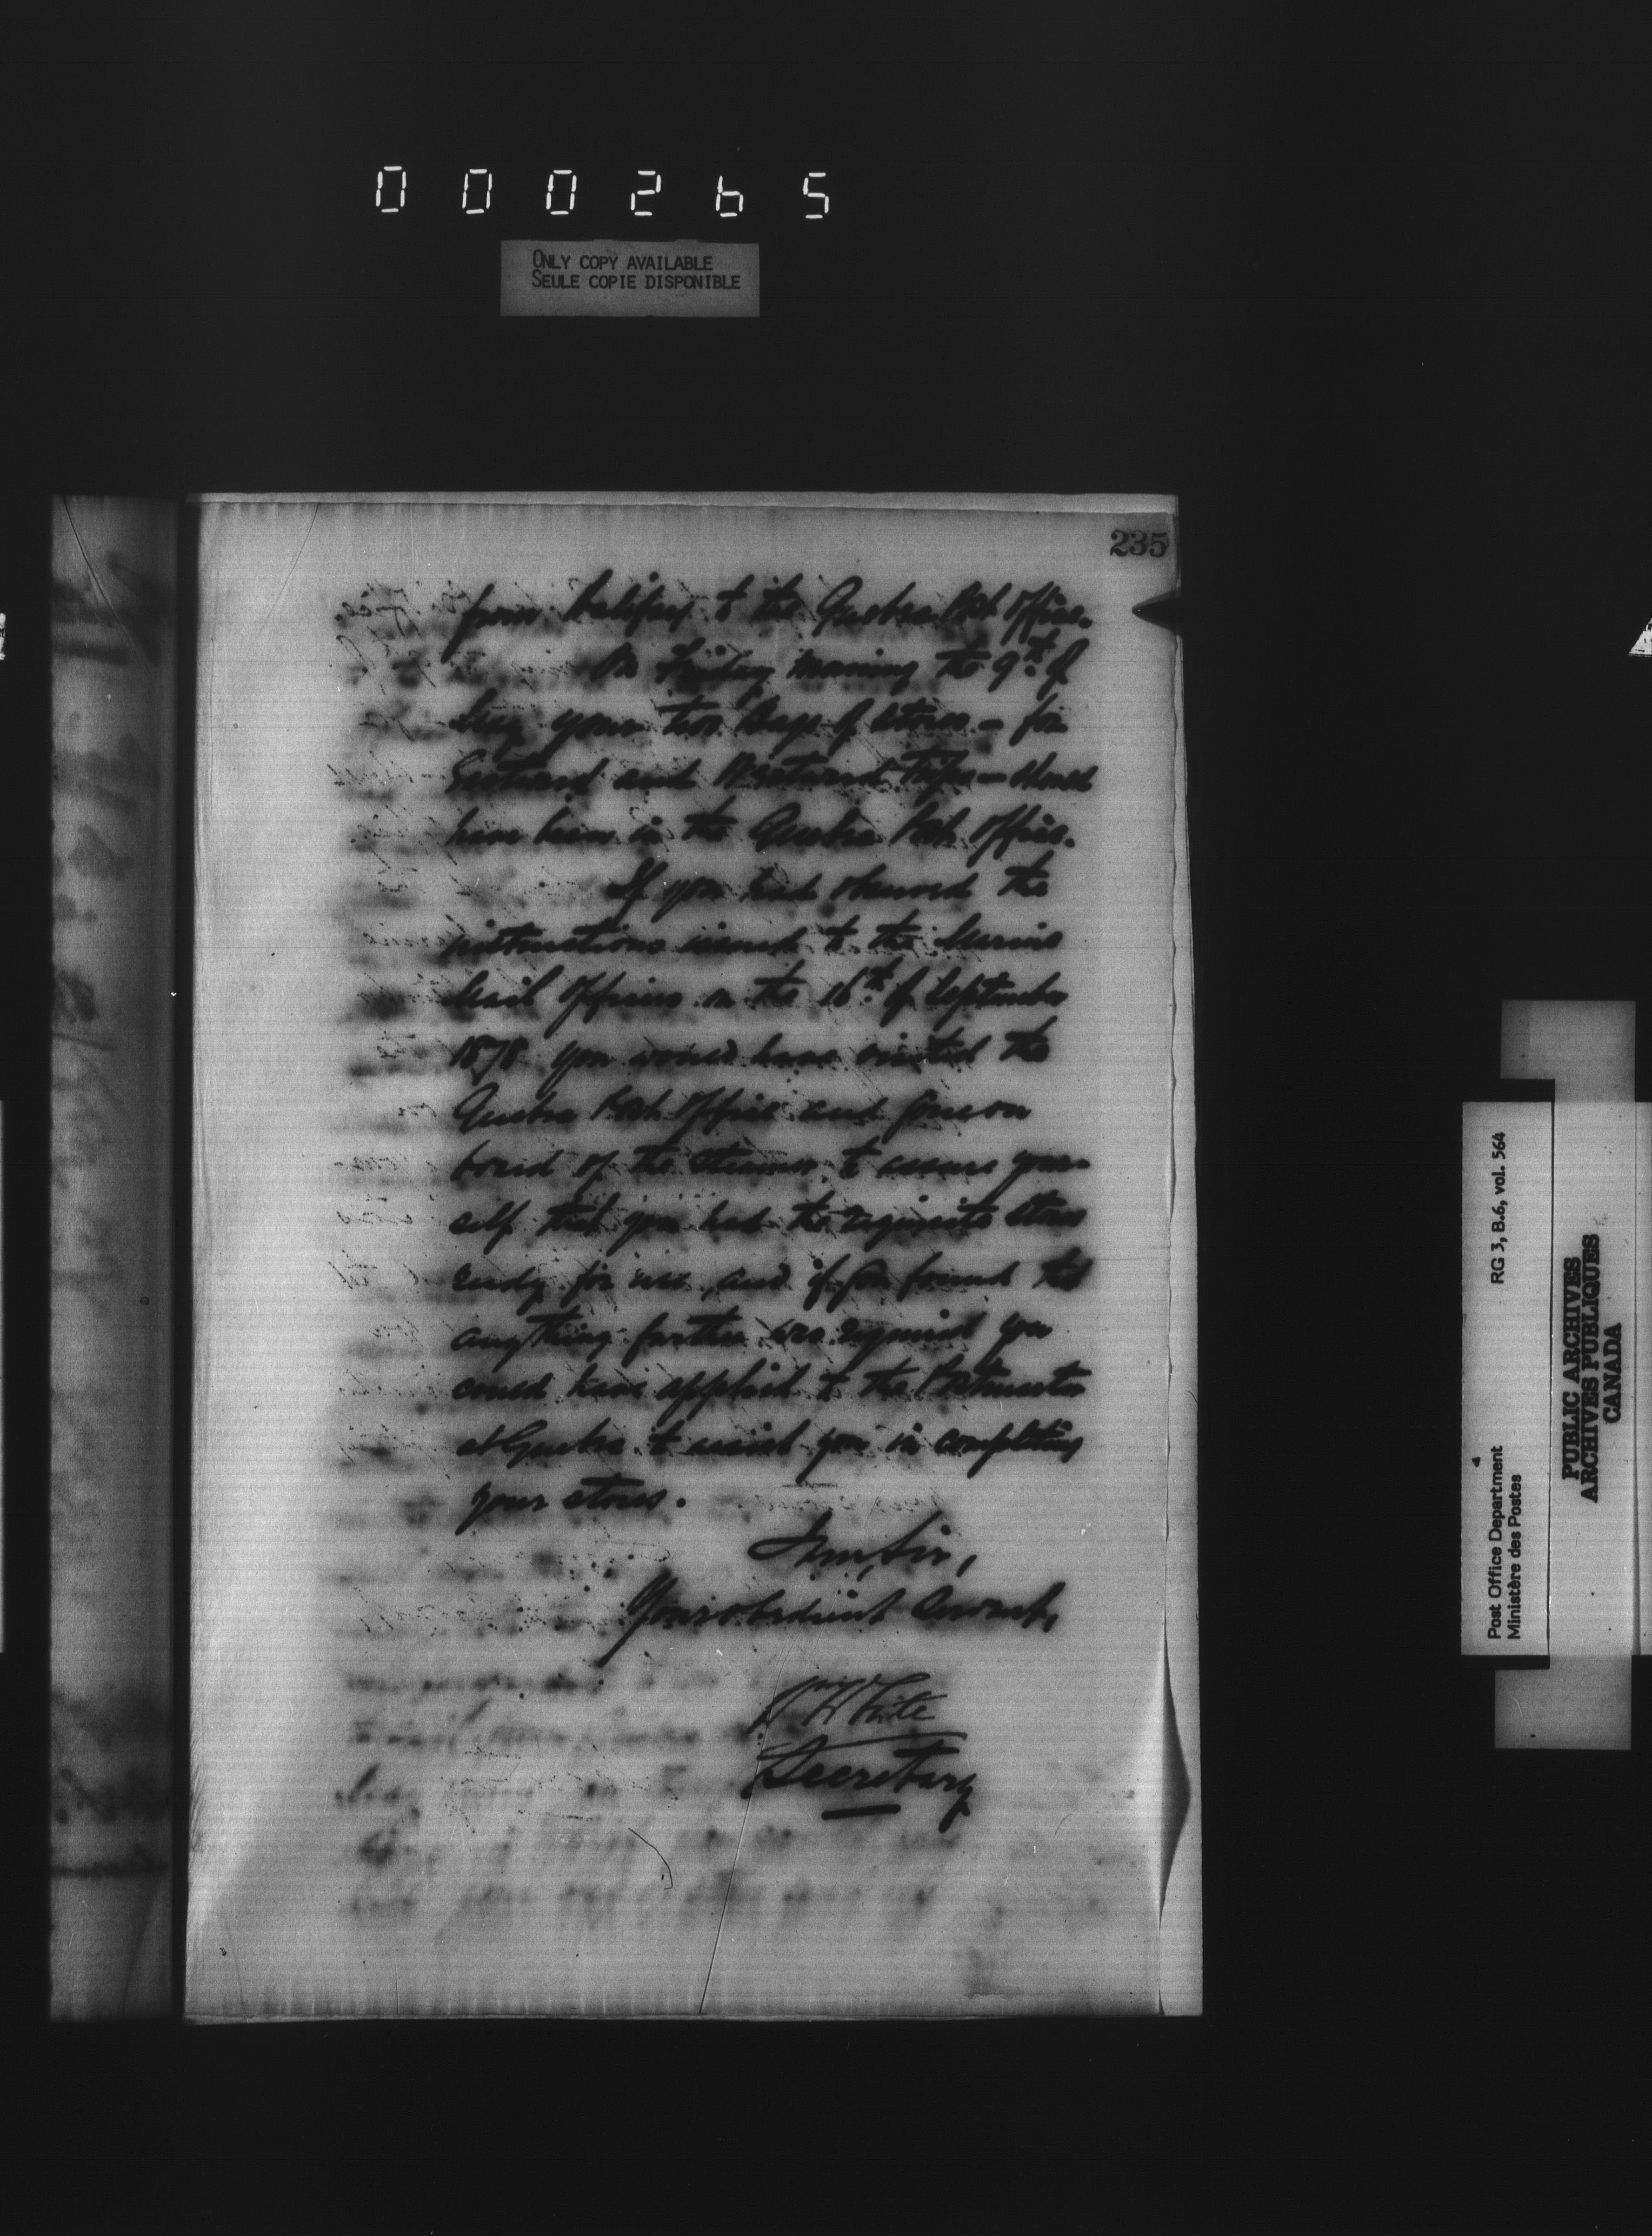 000265
ONLY COPY AVAILABLE
SEULE COPIE DISPONIBLE
235
from Halifax to the Quebec Post Office.
On Friday morning the 9th of
May your two Bags of stores – for
Eastward and Westward Trips – should
have been in the Quebec Post Office.
If you had observed the
instructions issued to the Marine
Mail Officers on the 16th of September
1878 you would have visited the
Quebec Post Office and gone on
board of the Steamer to assure your-
self that you had the requisite stores
ready for use, and if you found that
anything further was required you
could have applied to the Postmaster
at Quebec to assist you in completing
your stores.
I am, Sir,
Your obedient Servant,
White
Secretary
Post Office Department
Ministère des Postes
RG 3, B.6, vol. 564
PUBLIC ARCHIVES
ARCHIVES PUBLIQUES
CANADA